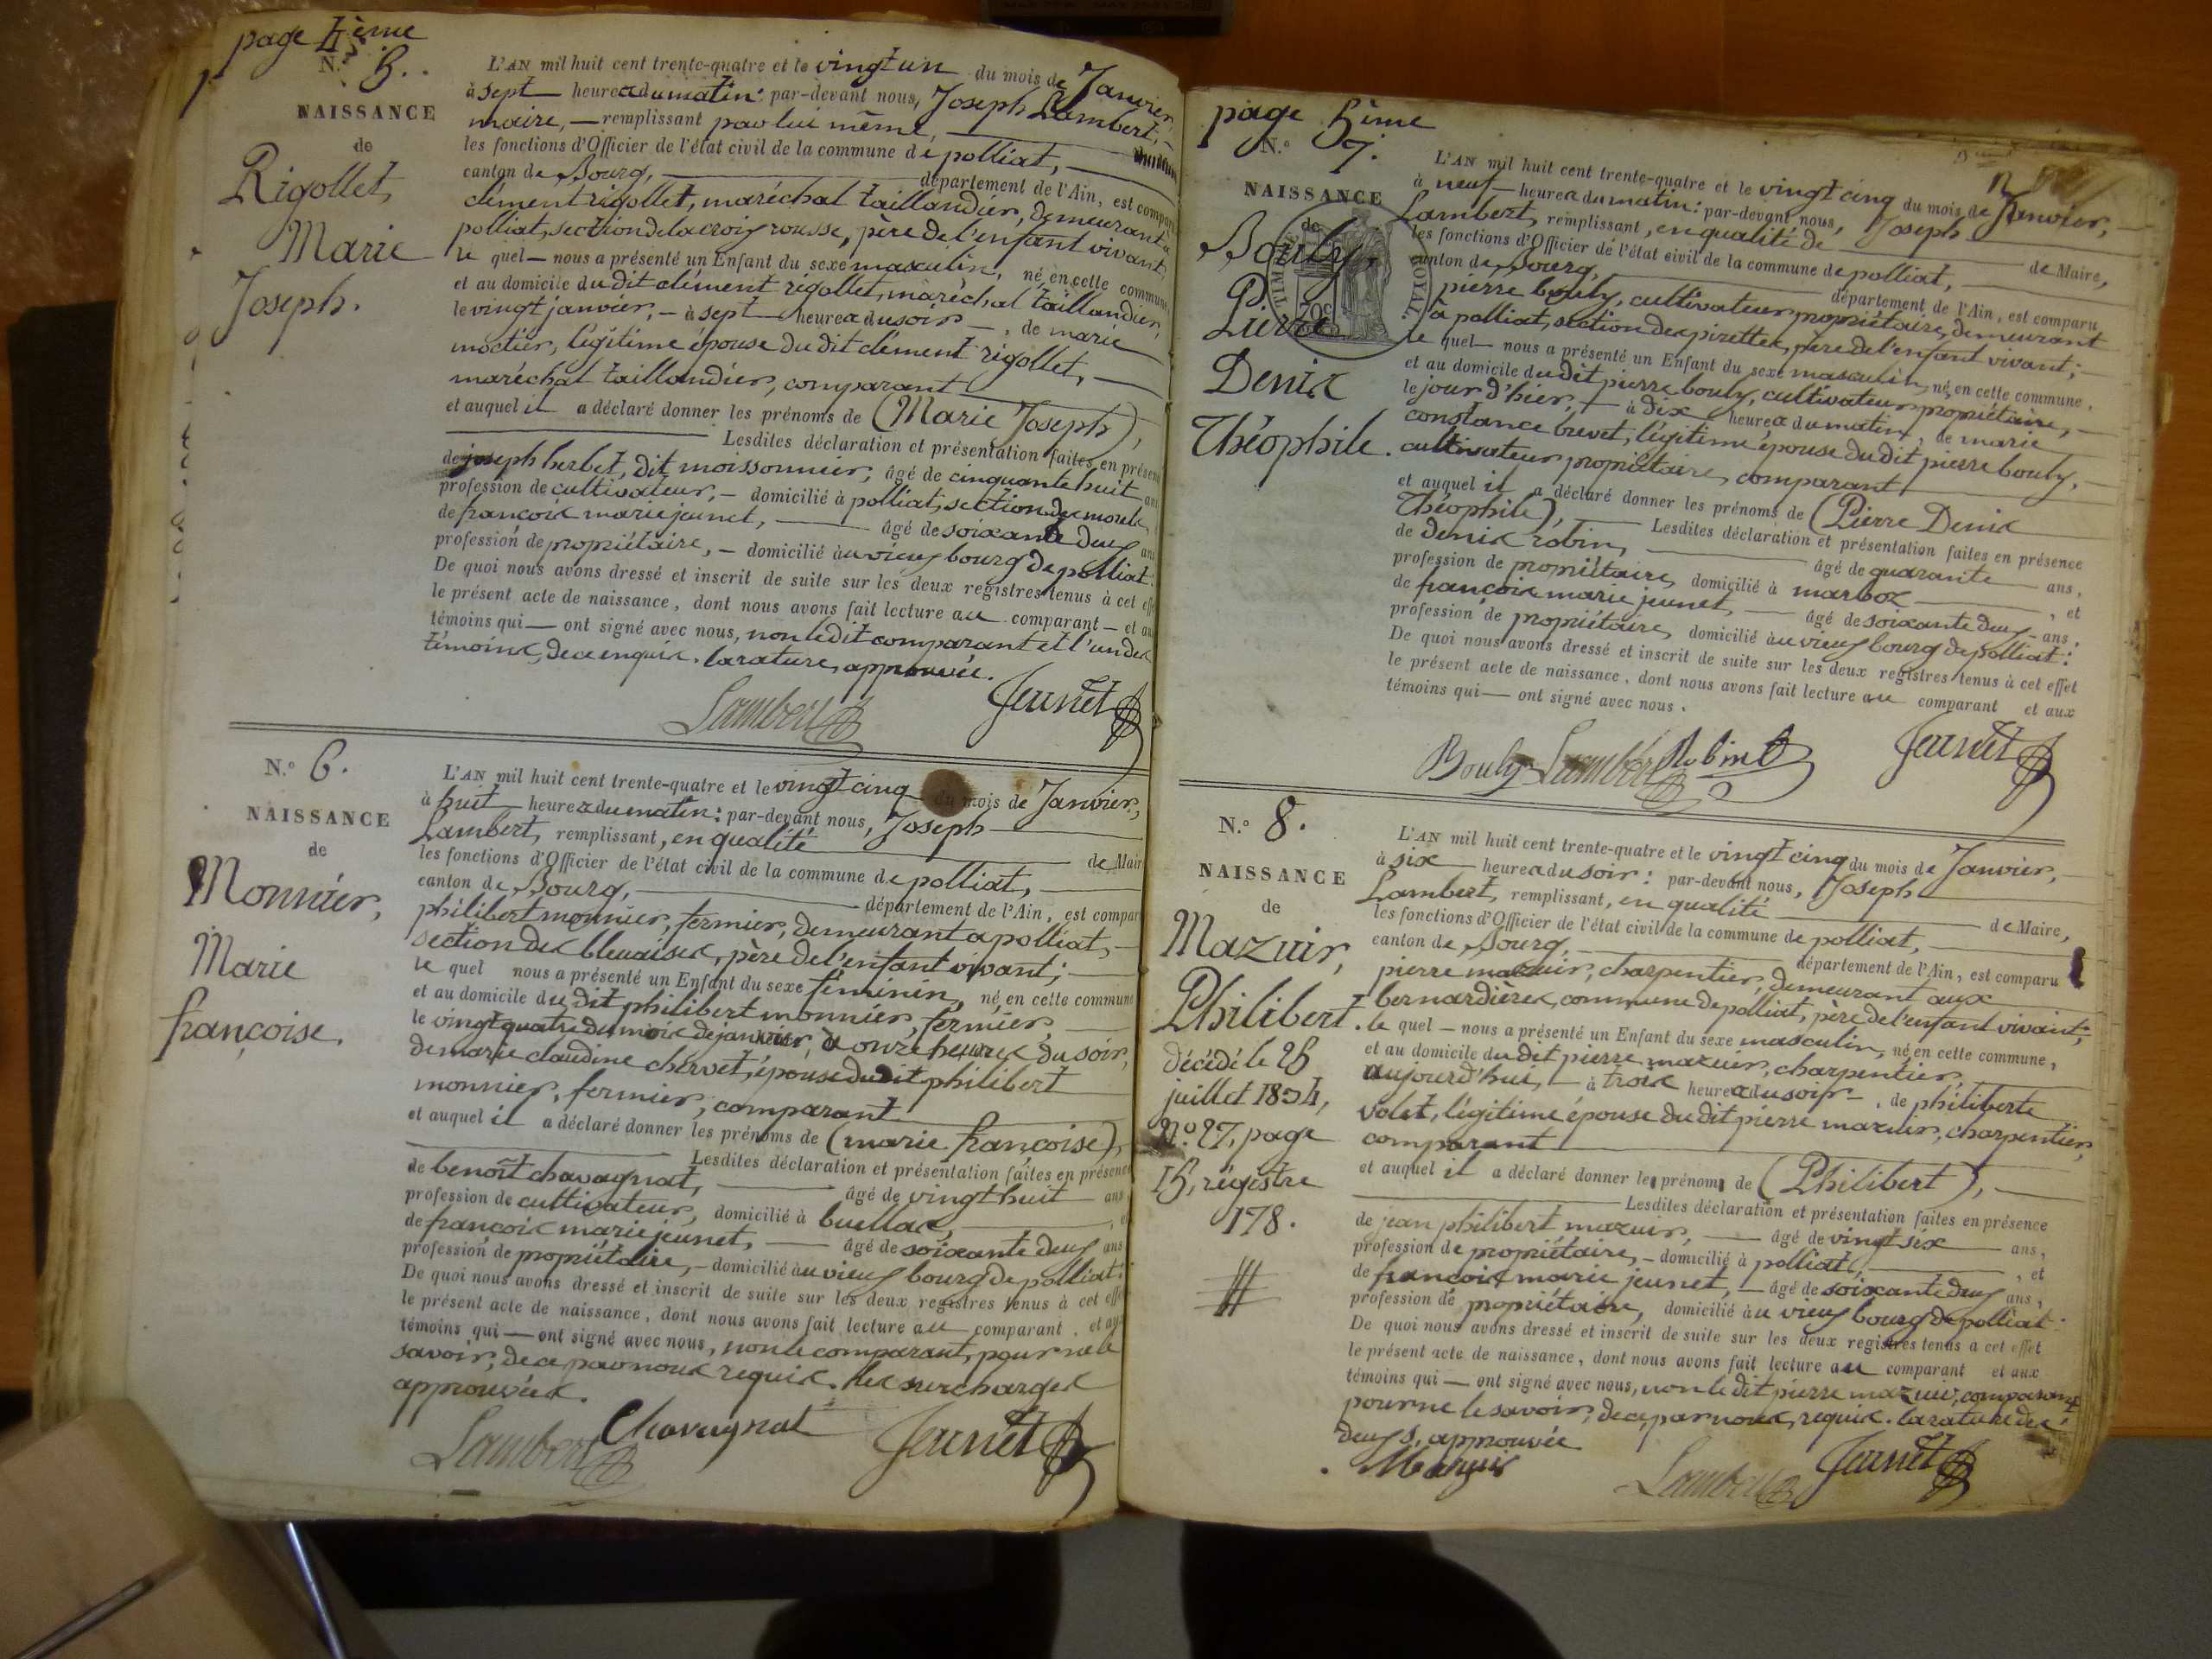 page 4ème
N.° 5.
NAISSANCE
de
Rigollet,
Marie
Joseph.
L'AN mil huit cent trente-quatre et le vingt un du mois de Janvier,
à sept heures du matin: par-devant nous, Joseph Lambert,
maire, — remplissant par lui même,
les fonctions d'Officier de l'état civil de la commune de polliat,
canton de Bourg, département de l'Ain, est comparu
clément rigollet, maréchal taillandier, demeurant à
polliat, section de la croix rousse, père de l'enfant vivant,
le quel — nous a présenté un Enfant du sexe masculin, né en cette commune
et au domicile du dit clément rigollet, maréchal taillandier,
le vingt janvier, — à sept heures du soir —, de marie
moctier, légitime épouse du dit clément rigollet, —
maréchal taillandier, comparant
et auquel il a déclaré donner les prénoms de (Marie Joseph),
Lesdites déclaration et présentation faites en présence
de joseph herbet, dit moissonnier, âgé de cinquante huit ans
profession de cultivateur, — domicilié à polliat, section des
de françois marie jeunet, — âgé de soixante deux ans
profession de propriétaire, — domicilié au vieux bourg de polliat.
De quoi nous avons dressé et inscrit de suite sur les deux registres tenus à cet effet
le présent acte de naissance, dont nous avons fait lecture au comparant — et aux
témoins qui — ont signé avec nous, non le dit comparant et l'un des
témoins, de ce enquis. la rature, approuvée.
Lambert Jeunet
N.° 6.
NAISSANCE
de
Monnier,
Marie
françoise.
L'AN mil huit cent trente-quatre et le vingt cinq du mois de Janvier,
à huit heures du matin: par-devant nous, Joseph
Lambert, remplissant, en qualité de Maire
les fonctions d'Officier de l'état civil de la commune de polliat,
canton de Bourg, département de l'Ain, est comparu
philibert monnier, fermier, demeurant a polliat, —
section des bleuaises, père de l'enfant vivant; —
le quel nous a présenté un Enfant du sexe féminin, né en cette commune
et au domicile du dit philibert monnier, fermier,
le vingt quatre du mois de janvier, à onze heures du soir,
de marie claudine chervet, épouse du dit philibert
monnier, fermier, comparant
et auquel il a déclaré donner les prénoms de (marie françoise),
Lesdites déclaration et présentation faites en présence
de benoît chavagnat, âgé de vingt huit ans
profession de cultivateur, domicilié à buellas, et
de françois marie jeunet, — âgé de soixante deux ans
profession de propriétaire, — domicilié au vieux bourg de polliat.
De quoi nous avons dressé et inscrit de suite sur les deux registres tenus à cet effet
le présent acte de naissance, dont nous avons fait lecture au comparant. et aux
témoins qui — ont signé avec nous, non le comparant, pour ne le
savoir, de ce par nous requis. les surcharges
approuvées.
Lambert Chavagnat Jeunet
page 5ème
N.° 7.
NAISSANCE
de
Bouly,
Pierre
Denis
Théophile.
TIMBRE ROYAL
70c
L'AN mil huit cent trente-quatre et le vingt cinq du mois de Janvier,
à neuf — heures du matin: par-devant nous, Joseph
Lambert, remplissant, en qualité de — de Maire,
les fonctions d'Officier de l'état civil de la commune de polliat,
canton de Bourg, département de l'Ain, est comparu
pierre bouly, cultivateur propriétaire, demeurant
à polliat, section des pirettes, père de l'enfant vivant; —
le quel nous a présenté un Enfant du sexe masculin, né en cette commune,
et au domicile du dit pierre bouly, cultivateur propriétaire, —
le jour d'hier, — à dix heures du matin, de marie
constance brevet, légitime épouse du dit pierre bouly,
cultivateur propriétaire, comparant
et auquel il a déclaré donner les prénoms de (Pierre Denis
Théophile), — Lesdites déclaration et présentation faites en présence
de denis robin, âgé de quarante ans,
profession de propriétaire, domicilié à marboz, et
de françois marie jeunet, — âgé de soixante deux ans,
profession de propriétaire, domicilié au vieux bourg de polliat:
De quoi nous avons dressé et inscrit de suite sur les deux registres tenus à cet effet
le présent acte de naissance, dont nous avons fait lecture au comparant et aux
témoins qui — ont signé avec nous.
Bouly Lambert Robin Jeunet
N.° 8.
NAISSANCE
de
Mazuir,
Philibert.
décédé le 25
juillet 1834,
N.° 27, page
15, régistre
178.
L'AN mil huit cent trente-quatre et le vingt cinq du mois de Janvier,
à six heures du soir: par-devant nous, Joseph
Lambert, remplissant, en qualité de Maire,
les fonctions d'Officier de l'état civil de la commune de polliat,
canton de Bourg, département de l'Ain, est comparu
pierre mazuir, charpentier, demeurant aux
bernardières, commune de polliat, père de l'enfant vivant;
le quel — nous a présenté un Enfant du sexe masculin, né en cette commune,
et au domicile du dit pierre mazuir, charpentier,
aujourd'hui, — à trois heures du soir —, de philiberte
volet, légitime épouse du dit pierre mazuir, charpentier,
comparant
et auquel il a déclaré donner le prénom de (Philibert), —
Lesdites déclaration et présentation faites en présence
de jean philibert mazuir, — âgé de vingt six ans,
profession de propriétaire, — domicilié à polliat, et
de françois marie jeunet, — âgé de soixante deux ans,
profession de propriétaire, domicilié au vieux bourg de polliat.
De quoi nous avons dressé et inscrit de suite sur les deux registres tenus à cet effet
le présent acte de naissance, dont nous avons fait lecture au comparant et aux
témoins qui — ont signé avec nous, non le dit pierre mazuir, comparant
pour ne le savoir, de ce, par nous, requis. la rature des
deux s, approuvée.
Mazuir Lambert Jeunet